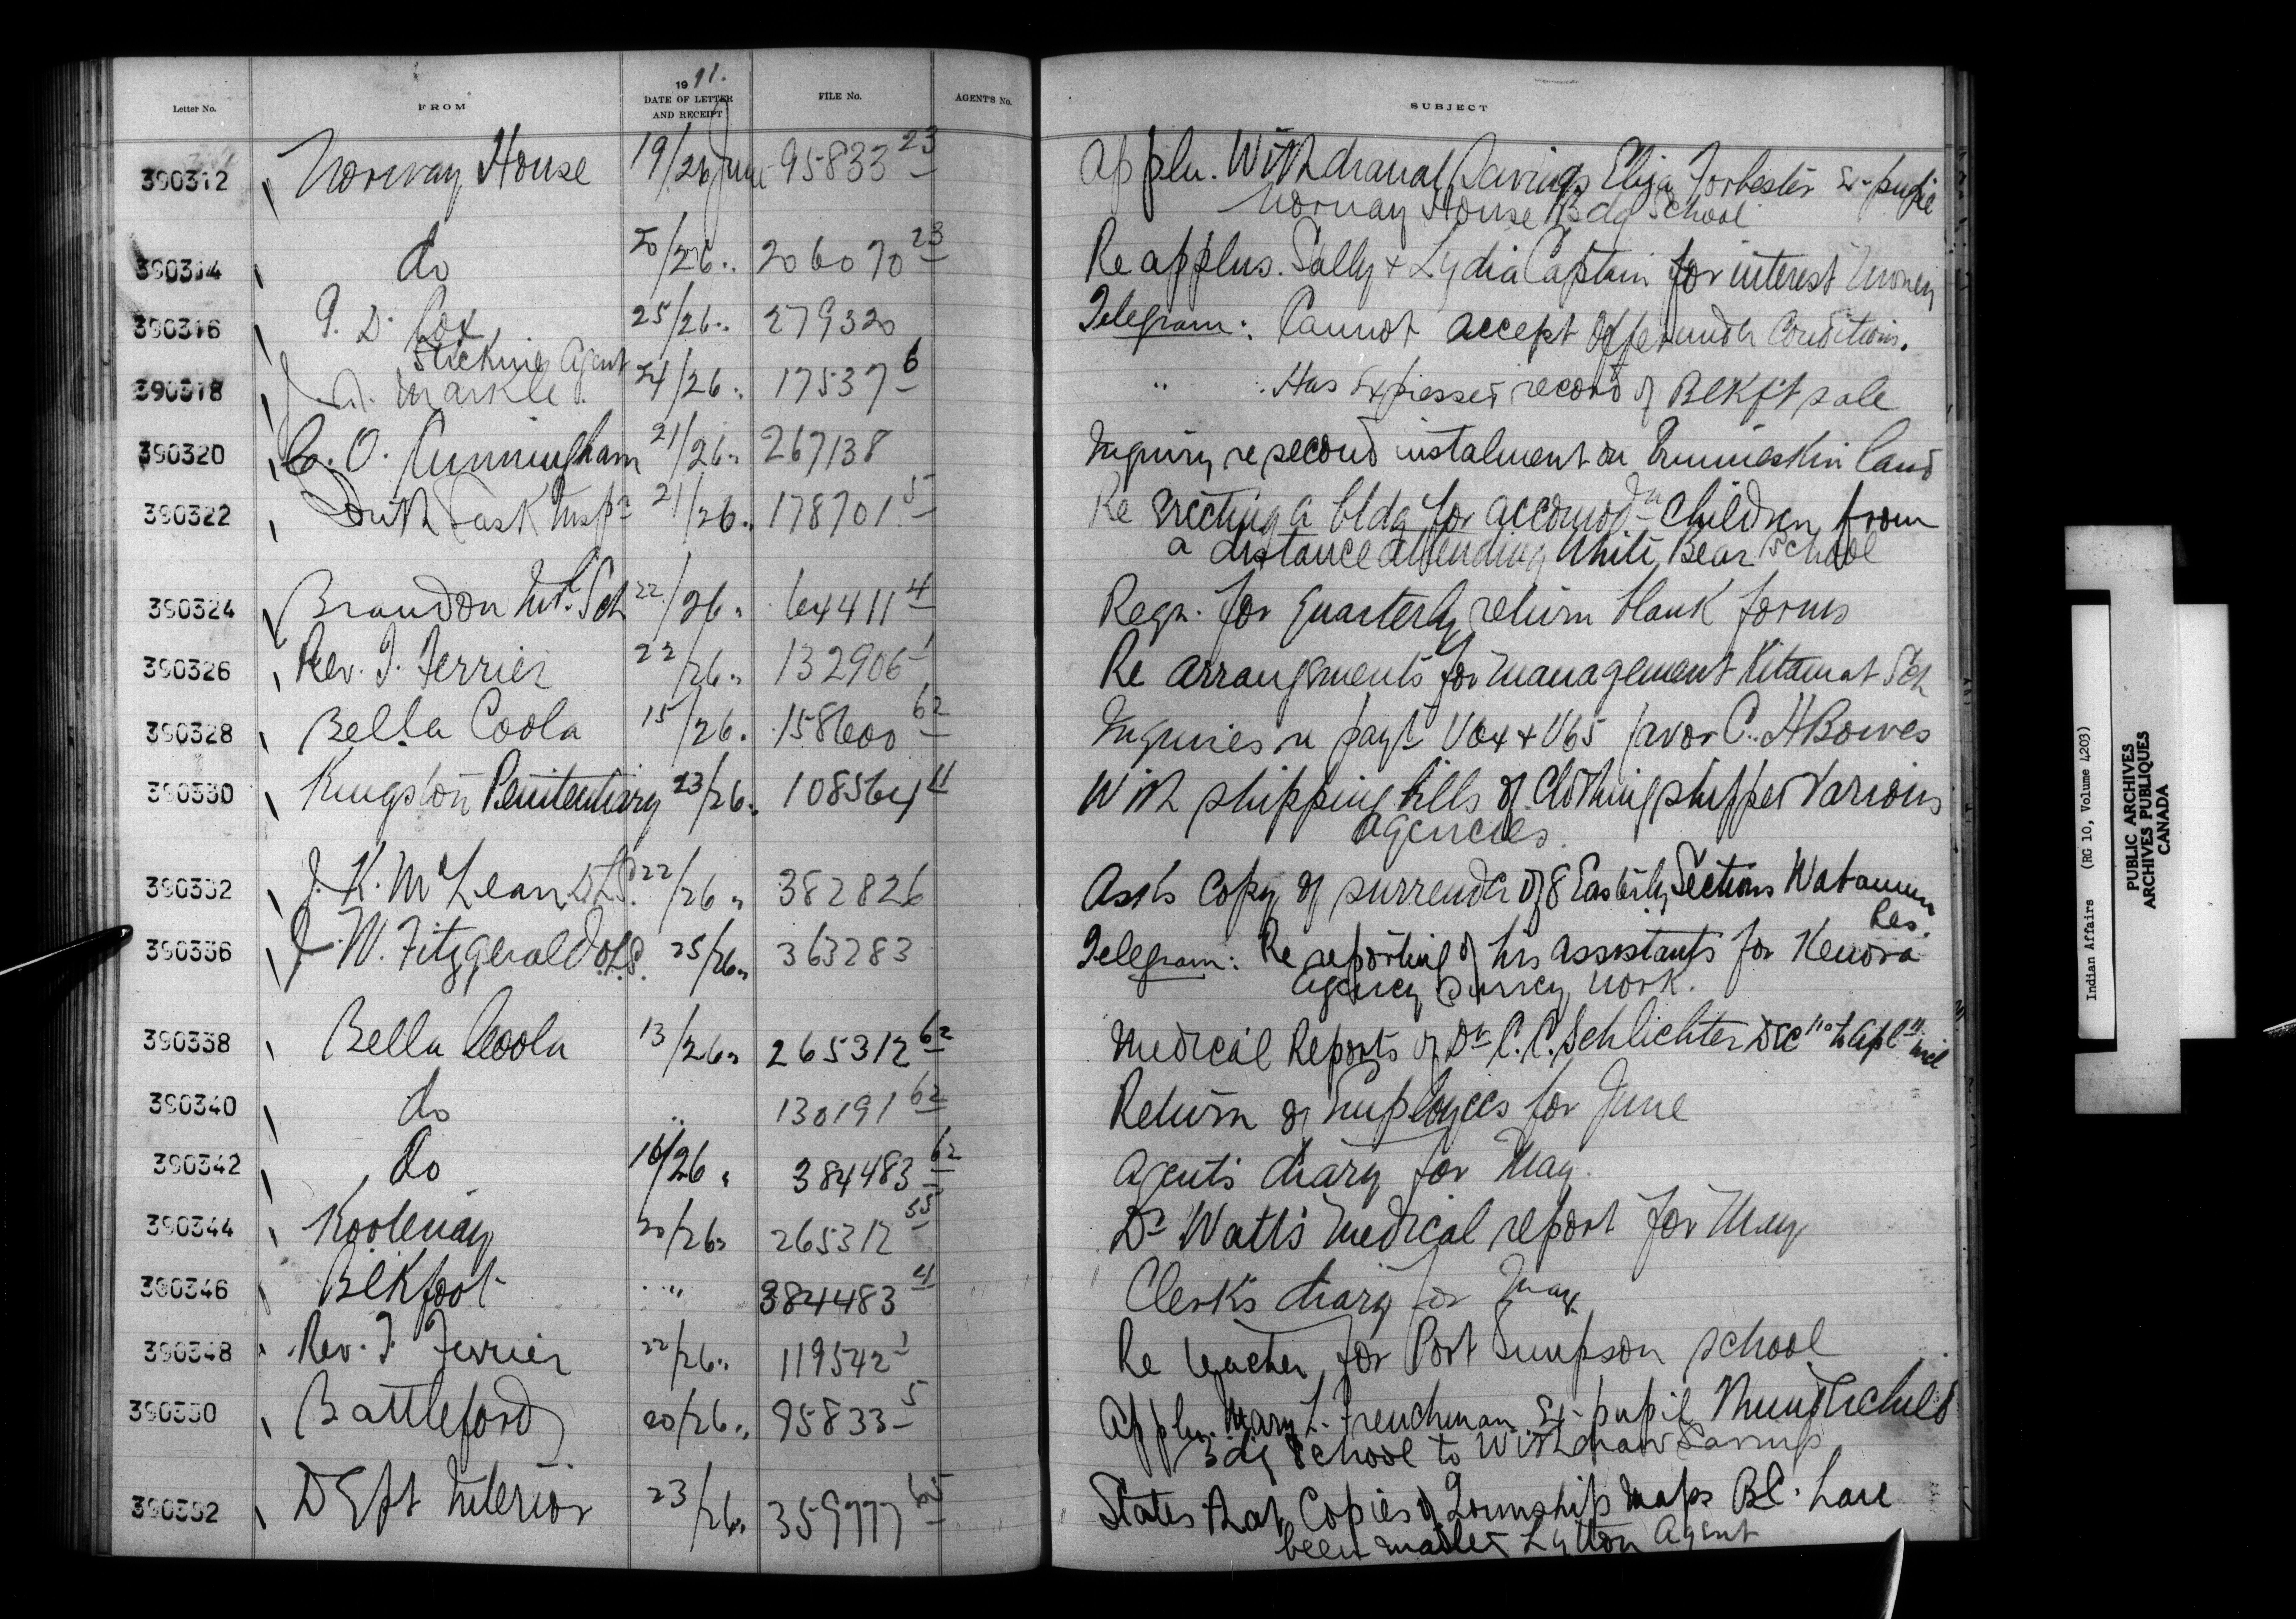 Letter No. FROM 1911. DATE OF LETTER AND RECEIPT FILE No. AGENT'S No. SUBJECT
390312 Norway House 19/26 June 95833 23 Appln. Withdrawal Savings Eliza Forbester Ex-pupil
Norway House Bdg School
390314 do 20/26 " 206070 23 Re applns. Sally & Lydia Captain for interest money
390316 Cox 25/26 " 279320 Telegram: Cannot accept offer under conditions.
Stickine Agent
390318 J. A. Markle 24/26 " 17537 6 " Has expresses record of Blkft sale
390320 C. O. Cunningham 21/26 " 267138 Inquiry re second instalment on Ermineskin land
390322 South Sask Inspr 21/26 " 178701 5 Re erecting a bldg for accomodn children from
a distance attending White Bear School
390324 Brandon Inl. Sch 22/26 " 64411 4 Reqn. for quarterly return blank forms
390326 Rev. T. Ferrier 22/26 " 132906 1 Re arrangements for management Kitamat Sch
390328 Bella Coola 15/26 " 158600 62 Inquiries re payt V64 & V65 favor C. H Bowes
390330 Kingston Penitentiary 23/26 " 108564 11 With shipping bills of clothing shipped various
agencies.
390332 J. K. McLean D.L.S. 22/26 " 382826 Asks copy of surrender of 8 Easterly Sections
Res.
390336 J. W. Fitzgerald O.L.S. 25/26 " 363283 Telegram: Re reporting of his assistants for Kenora
Agency Survey work.
390338 Bella Coola 13/26 " 265312 62 Medical Reports of Dr C. C. Schlichter Dec "10 to Apl "11 incl
390340 do " 130191 62 Return of Employees for June
390342 do 16/26 " 384483 62 Agent's diary for May.
390344 Kootenay 20/26 " 265312 55 Dr Watt's medical report for May
390346 Blkfoot " " 384483 4 Clerk's diary for May
390348 Rev. T. Ferrier 22/26 " 119542 1 Re teacher for Port Simpson school
390350 Battleford 20/26 " 95833 5 Appln. Mary L. Frenchman Ex-pupil Thunderchild
Bdg School to withdraw Savings
390352 Dept Interior 23/26 " 359777 65 States that Copies of Township maps B.C. have
been mailed Lytton Agent
Indian Affairs (RG 10, Volume 4203)
PUBLIC ARCHIVES
ARCHIVES PUBLIQUES
CANADA